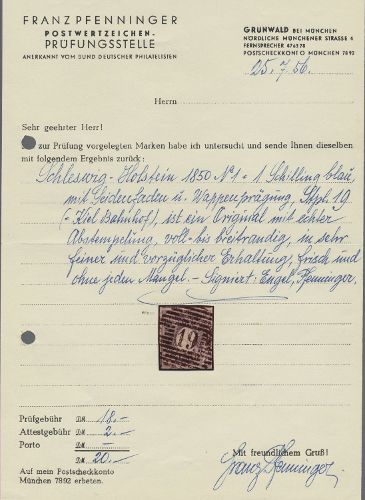 FRANZ PFENNINGER
POSTWERTZEICHEN-
PRÜFUNGSSTELLE
ANERKANNT VOM BUND DEUTSCHER PHILATELISTEN
GRUNWALD BEI MÜNCHEN
NÖRDLICHE MÜNCHENER STRASSE 4
FERNSPRECHER 476378
POSTSCHECKKONTO MÜNCHEN 7892
25.7.56.
Herrn
Sehr geehrter Herr!
zur Prüfung vorgelegten Marken habe ich untersucht und sende Ihnen dieselben
mit folgendem Ergebnis zurück:
Schleswig-Holstein 1850 No 1 = 1 Schilling blau,
mit Seidenfaden u. Wappenprägung, Stpl. 19
(= Kiel Bahnhof), ist ein Original mit echter
Abstempelung, voll- bis breitrandig, in sehr
feiner und vorzüglicher Erhaltung, frisch und
ohne jeden Mangel. – Signiert: Engel, Pfenninger.
19
Prüfgebühr DM 18.-
Attestgebühr DM 2.-
Porto DM –
DM 20.-
Auf mein Postscheckkonto
München 7892 erbeten.
Mit freundlichem Gruß!
Franz Pfenninger